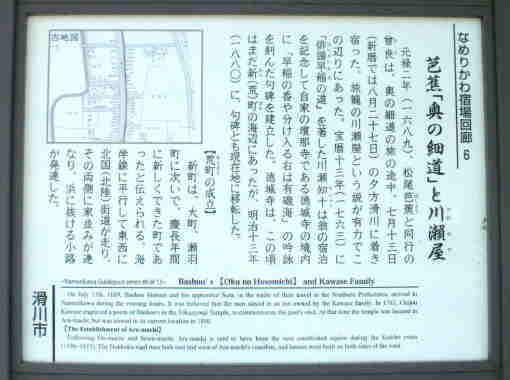 なめりかわ宿場回廊 6
芭蕉「奥の細道」と川瀬屋
元禄二年(一六八九)、松尾芭蕉と同行の
曾良は、奥の細道の旅の途中、七月十三日
(新暦では八月二十七日)の夕方滑川に着き
宿った。旅籠の川瀬屋という説が有力でこ
の辺りにあった。宝暦十三年(一七六三)に
「俳諧早稲の道」を著した川瀬知十は翁の宿泊
を記念して自家の壇那寺である徳城寺の境内
に、「早稲の香や分け入る右は有磯海」の吟詠
を刻んだ句碑を建立した。徳城寺は、この頃
はまだ新(荒)町の海辺にあったが、明治十三年
(一八八〇)に、句碑とも現在地に移転した。
古地図
【荒町の成立】
新町は、大町、瀬羽
町に次いで、慶長年間
に新しくできた町であ
ったと伝えられる。海
岸線に平行して東西に
北国(北陸)街道が走り、
その両側に家並みが連
なり、浜に抜ける小路
が発達した。
Bashou's 【Oku no Hosomichi】 and Kawase Family
On July 13th, 1689, Bashou Matsuo and his apprentice Sora, in the midst of their travel to the Northern Provinces, arrived in
Namerikawa during the evening hours. It was believed that the men stayed in an inn owned by the Kawase family. In 1763, Chijuu
Kawase engraved a poem of Bashou's in the Tokujyouji Temple, to commemorate the poet's visit. At that time the temple was located in
Ara-machi, but was moved to its current location in 1880.
【The Establishment of Ara-machi】
Following Oo-machi and Sewa-machi, Ara-machi is said to have been the next constituted region during the Keichō years
(1596~1615). The Hokkoku road runs both east and west of Ara-machi's coastline, and houses were built on both sides of the road.
滑川市